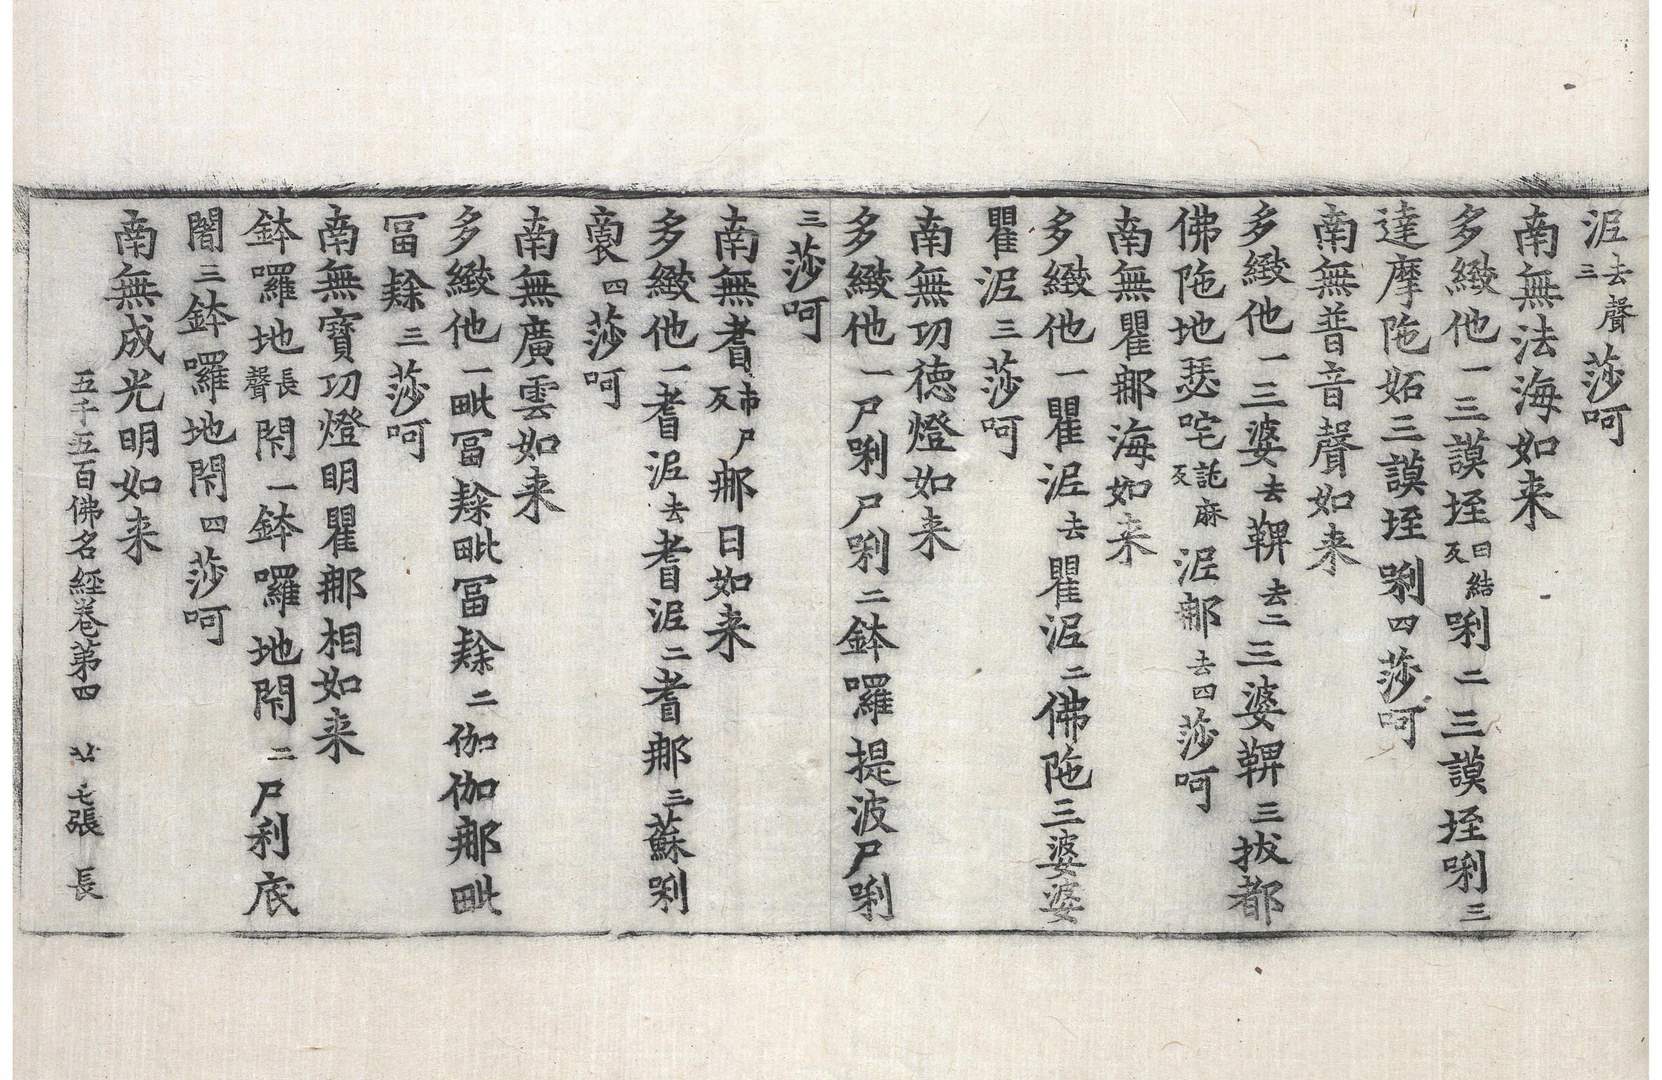 泥去聲三莎呵
南無法海如来
多緻他一三謨垤曰結反唎二三謨垤唎三
達摩陁妬三謨垤唎四莎呵
南無普音聲如来
多緻他一三婆去鞞去二三婆鞞三拔都
佛陁地瑟咤託麻反泥那去四莎呵
南無瞿那海如来
多緻他一瞿泥去瞿泥二佛陁三婆婆
瞿泥三莎呵
南無功德燈如来
多緻他一尸唎尸唎二鉢囉提波尸唎
三莎呵
南無耆市尸反那日如来
多緻他一耆泥去耆泥二耆那三蘇唎
裔四莎呵
南無廣雲如来
多緻他一毗冨䅘毗冨䅘二伽伽那毗
冨䅘三莎呵
南無寶功燈明瞿那相如来
鉢囉地長聲閇一鉢囉地閇二尸利底
闍三鉢囉地閇四莎呵
南無成光明如来
五千五百佛名經卷第四 廿七張 長